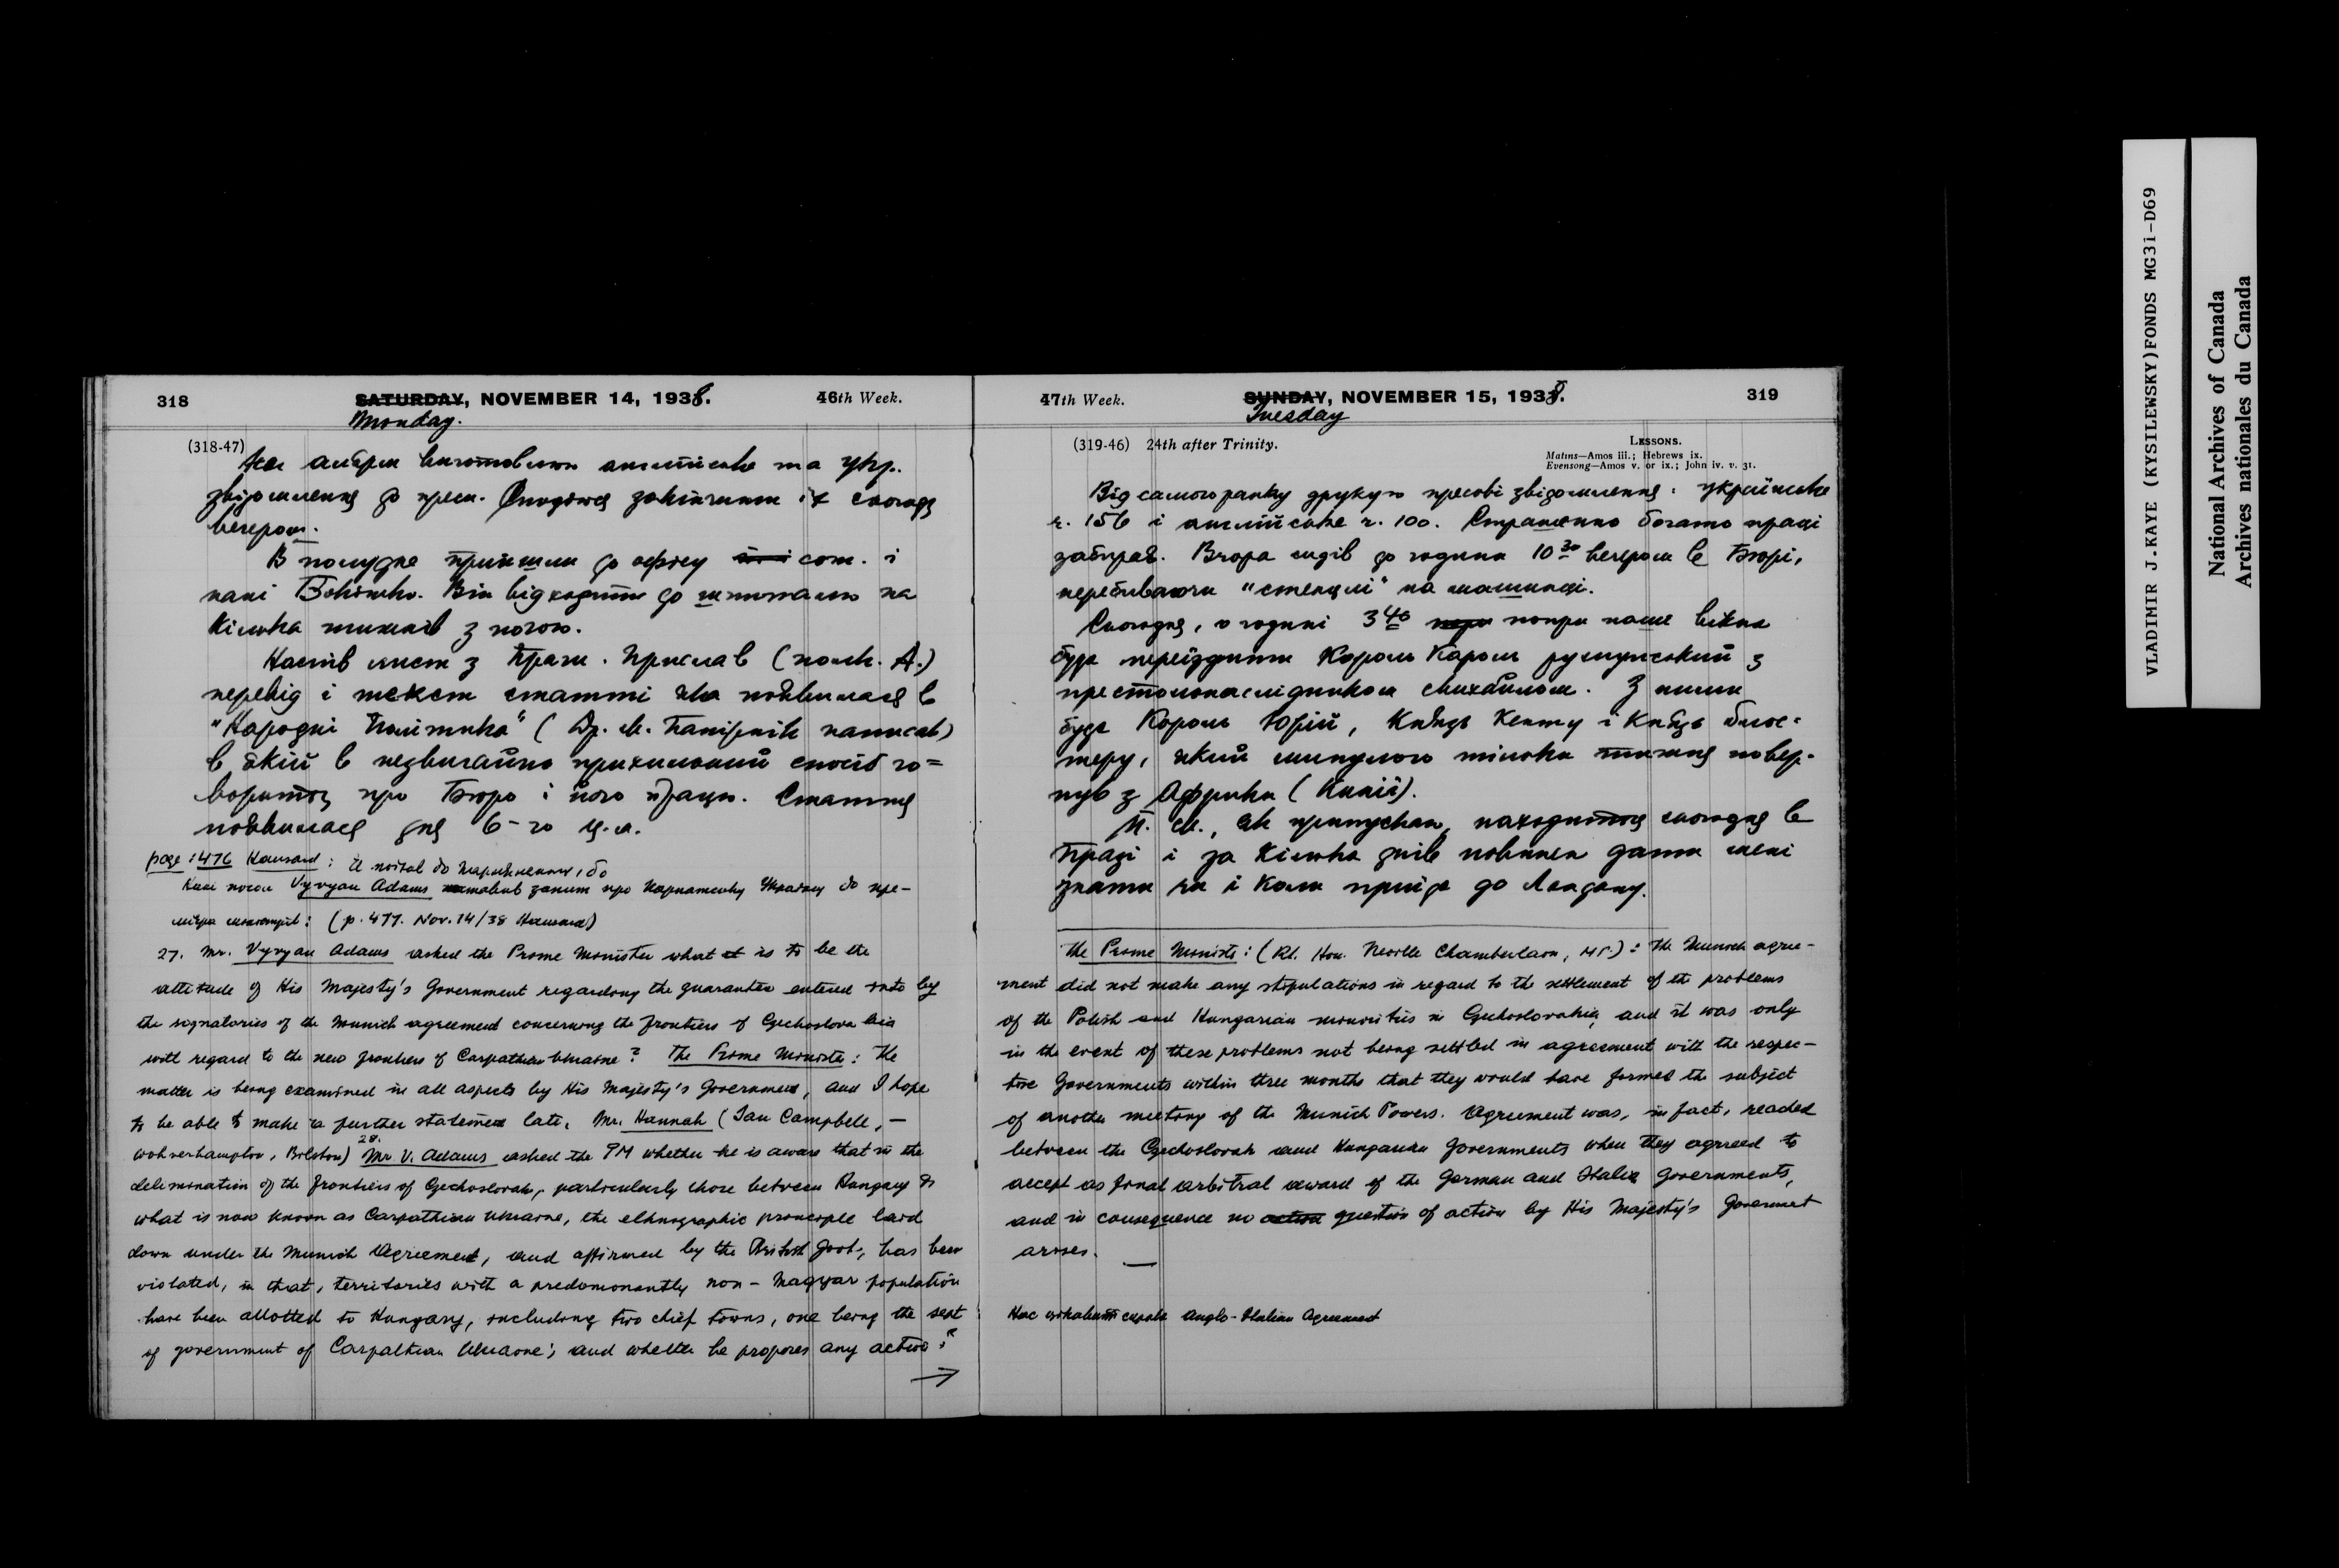 318
SATURDAY, NOVEMBER 14, 1938.
46th Week.
Monday.
(318-47)
виготовляю англійське та укр.
звідомлення до преси. Сподіюся закінчити їх сьогодн
вечером.
В полудне прийшли до офісу сот. і
пані Бокітько. Він відходить до шпиталю на
кілька тижнів з ногою.
Наспів лист з Праги. Прислав (полк. А.)
перевід і текст статті яка появилася в
"Народні Політика" (Др. М. написав)
в якій в незвичайно прихильний спосіб го=
вориться про Бюро і його працю. Стаття
появилася дня 6-го ц.м.
page: 476 Hansard: Є до Парляменту, бо
Vyvyan Adams ставив запит про Карпатську Україну до пре-
міра міністрів: (p. 477. Nov. 14/38 Hansard)
27. Mr. Vyvyan Adams asked the Prime Minister what it is to be the
attitude of His Majesty's Government regarding the guarantee entered into by
the signatories of the Munich agreement concerning the frontiers of Czechoslovakia
with regard to the new frontiers of Carpathian Ukraine? The Prime Minister: The
matter is being examined in all aspects by His Majesty's Government, and I hope
to be able to make a further statement later. Mr. Hannah (Ian Campbell, —
Wolverhampton, Bilston) 28. Mr V. Adams asked the PM whether he is aware that in the
delimination of the frontiers of Czechoslovak, particularly those between Hungary &
what is now known as Carpathian Ukraine, the ethnographic principle laid
down under the Munich Agreement, and affirmed by the British Govt, has been
violated, in that, territories with a predominantly non-Magyar population
have been allotted to Hungary, including two chief towns, one being the seat
of government of Carpathian Ukraine; and whether he proposes any action?
→
47th Week.
SUNDAY, NOVEMBER 15, 1938.
319
Tuesday
(319-46) 24th after Trinity.
LESSONS.
Matins—Amos iii.; Hebrews ix.
Evensong—Amos v. or ix.; John iv. v. 31.
Від самого ранку друкую пресові звідомлення: українське
ч. 156 і англійське ч. 100. Страшенно богато праці
забирає. Вчора сидів до години 10 30 вечером в Бюрі,
перебиваючи "стенцлі" на машинці.
Сьогодня, о годині 3 40 попри наше вікна
буде переїздити Король Кароль румунський з
престолонаслідником Михайлом. З ними
буде Король Юрій, Князь Кенту і Князь Ґлос=
теру, який минулого тілька тижня повер-
нув з Африки (Кинії).
П. М., як припускаю, находиться сьогодня в
Празі і за кілька днів повинен дати мені
знати чи і коли приїде до Лондону.
The Prime Minister: (Rt. Hon. Neville Chamberlain, MP.): The Munich agree-
ment did not make any stipulations in regard to the settlement of the problems
of the Polish and Hungarian minorities in Czechoslovakia, and it was only
in the event of these problems not being settled in agreement with the respec-
tive Governments within three months that they would have formed the subject
of another meeting of the Munich Powers. Agreement was, in fact, reached
between the Czechoslovak and Hungarian Governments when they agreed to
accept as final arbitral award of the German and Italian Governments,
and in consequence no action question of action by His Majesty's Government
arises.
Anglo-Italian Agreement
VLADIMIR J.KAYE (KYSILEWSKY)FONDS MG31-D69
National Archives of Canada
Archives nationales du Canada